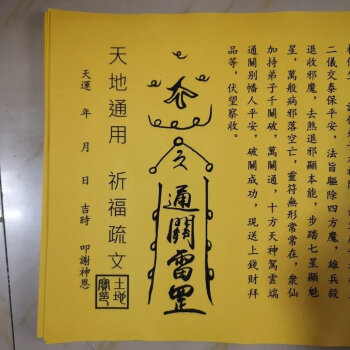 二儀交泰保平安，法旨驅除四方魔，雄兵殺
退收邪魔，去煞退邪顯本能，步踏七星顯魁
星，萬般病邪落空亡，靈符無形常常在，眾仙
加持弟子千關破，萬關通，十方天神駕雲端
通關別幡人平安，破關成功，現送上錢財拜
品等，伏望察收。
通關雷罡
天地通用 祈福疏文
土地
天運 年 月 日 吉時 叩謝神恩